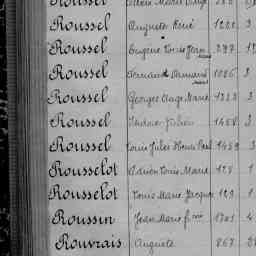 Roussel
Roussel Auguste René 1220 3
Roussel Eugène Louis Jean 297
Roussel Fernand Armand 1086 3
Roussel Georges Ange Marie 1253 3
Roussel Isidore Julien 1458 3
Roussel Louis Jules Henri Paul 1459 3
Rousselot Adrien Louis Marie 128 1
Rousselot Louis Marie Jacques 129 1
Roussin Jean Marie 1701 4
Rouvrais Auguste 867